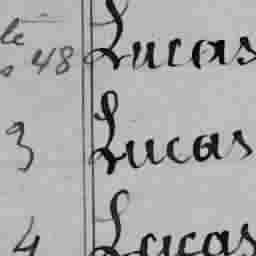 48 Lucas
3 Lucas
4 Lucas